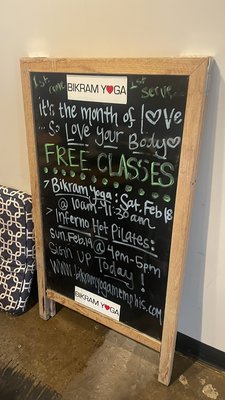 BIKRAM YOGA
1st come 1st serve
it's the month of love
... So Love your Body
FREE CLASSES
> Bikram Yoga: Sat. Feb 18
@ 10am-11:30am
> Inferno Hot Pilates:
Sun. Feb. 19 @ 4pm-5pm
SIGN UP Today!
www.bikramyogamemphis.com
BIKRAM YOGA